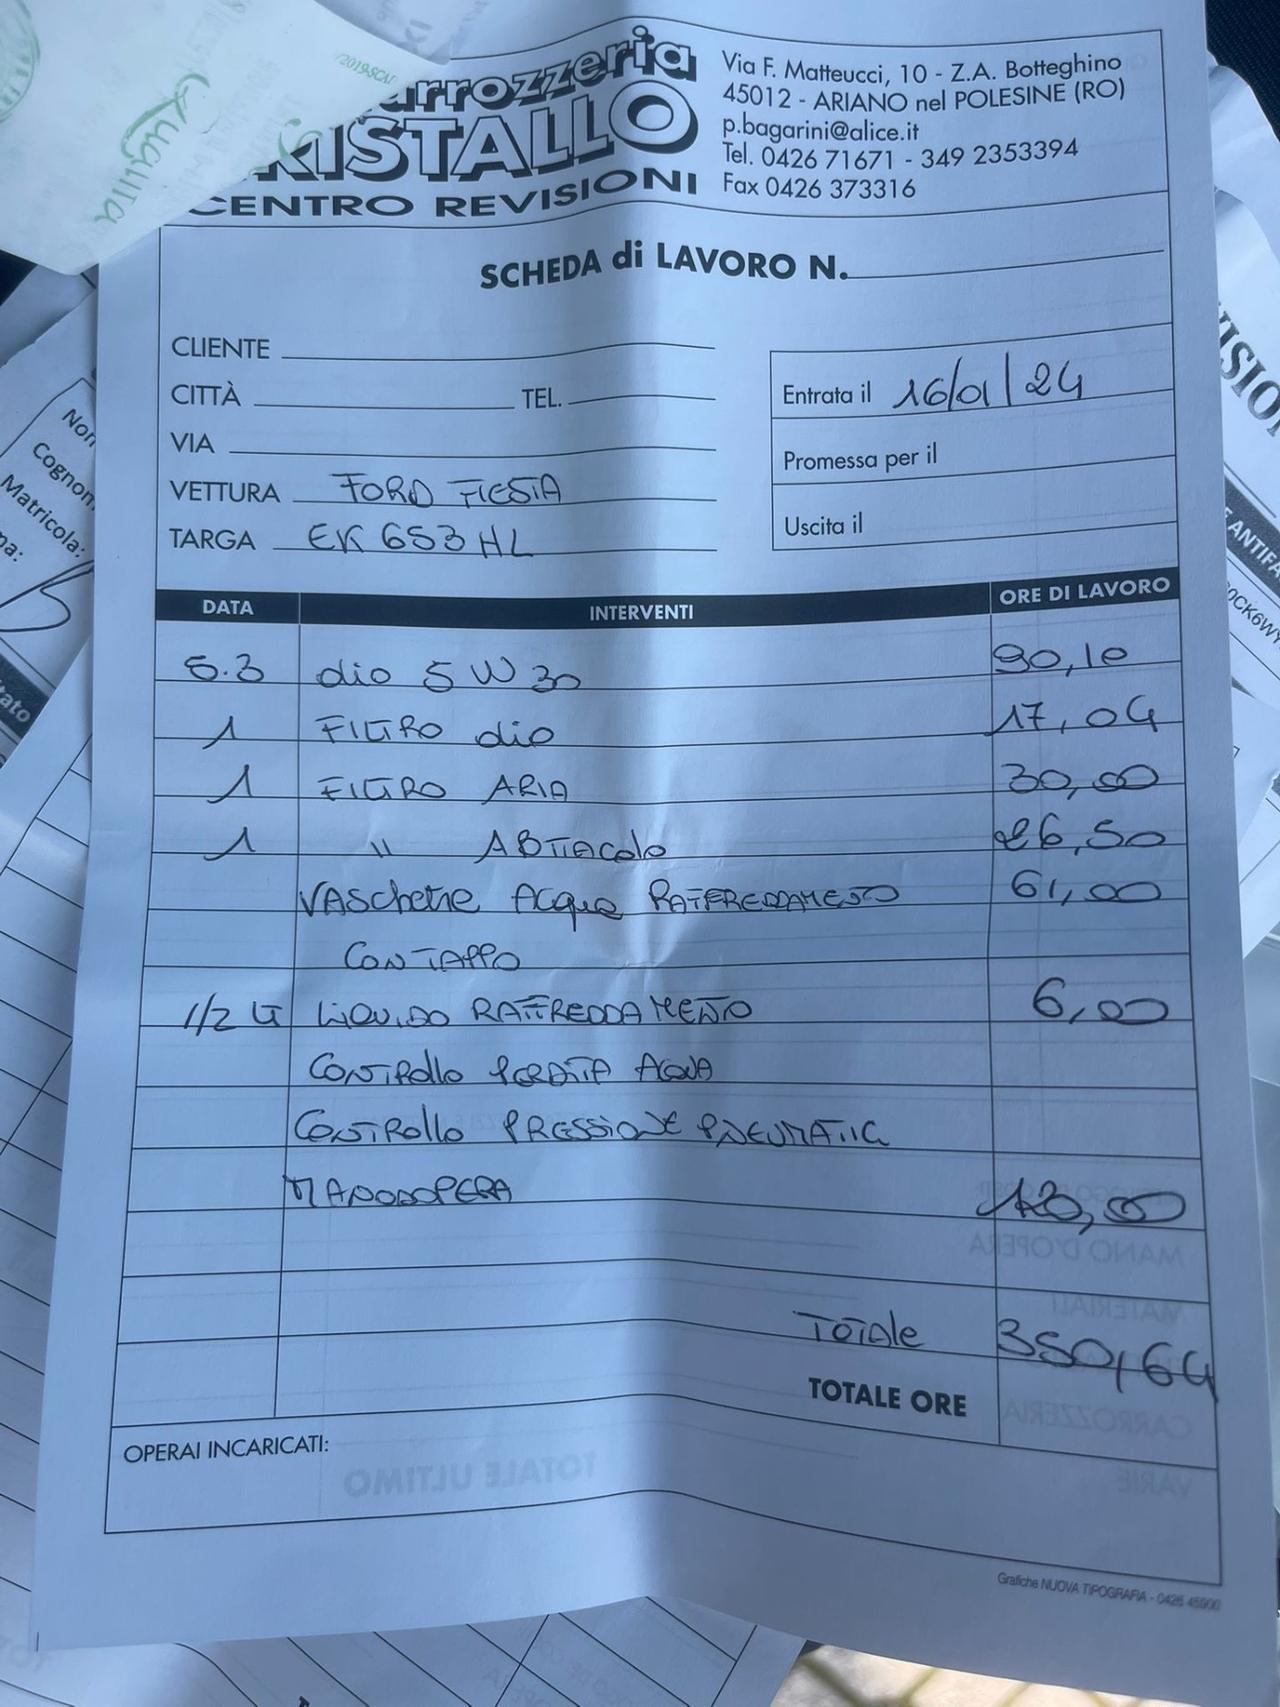 2019SCA
arrozzeria
RISTALLO
CENTRO REVISIONI
Via F. Matteucci, 10 - Z.A. Botteghino
45012 - ARIANO nel POLESINE (RO)
p.bagarini@alice.it
Tel. 0426 71671 - 349 2353394
Fax 0426 373316
SCHEDA di LAVORO N.
CLIENTE
CITTÀ TEL.
VIA
VETTURA FORD FIESTA
TARGA EK 653 HL
Entrata il 16/01/24
Promessa per il
Uscita il
DATA INTERVENTI ORE DI LAVORO
5.3 olio 5W30 90,10
1 FILTRO olio 17,04
1 FILTRO ARIA 30,00
1 " ABITACOLO 26,50
VASCHETTE ACQUA RAFFREDDAMENTO 61,00
CON TAPPO
1/2 LT LIQUIDO RAFFREDDAMENTO 6,00
CONTROLLO PERDITA ACQUA
CONTROLLO PRESSIONE PNEUMATICI
MANODOPERA 120,00
TOTALE 350,64
TOTALE ORE
OPERAI INCARICATI:
MANO D'OPERA
MATERIALI
CARROZZERIA
VARIE
TOTALE ULTIMO
Grafiche NUOVA TIPOGRAFIA - 0426 45900
Cognom
Matricola: